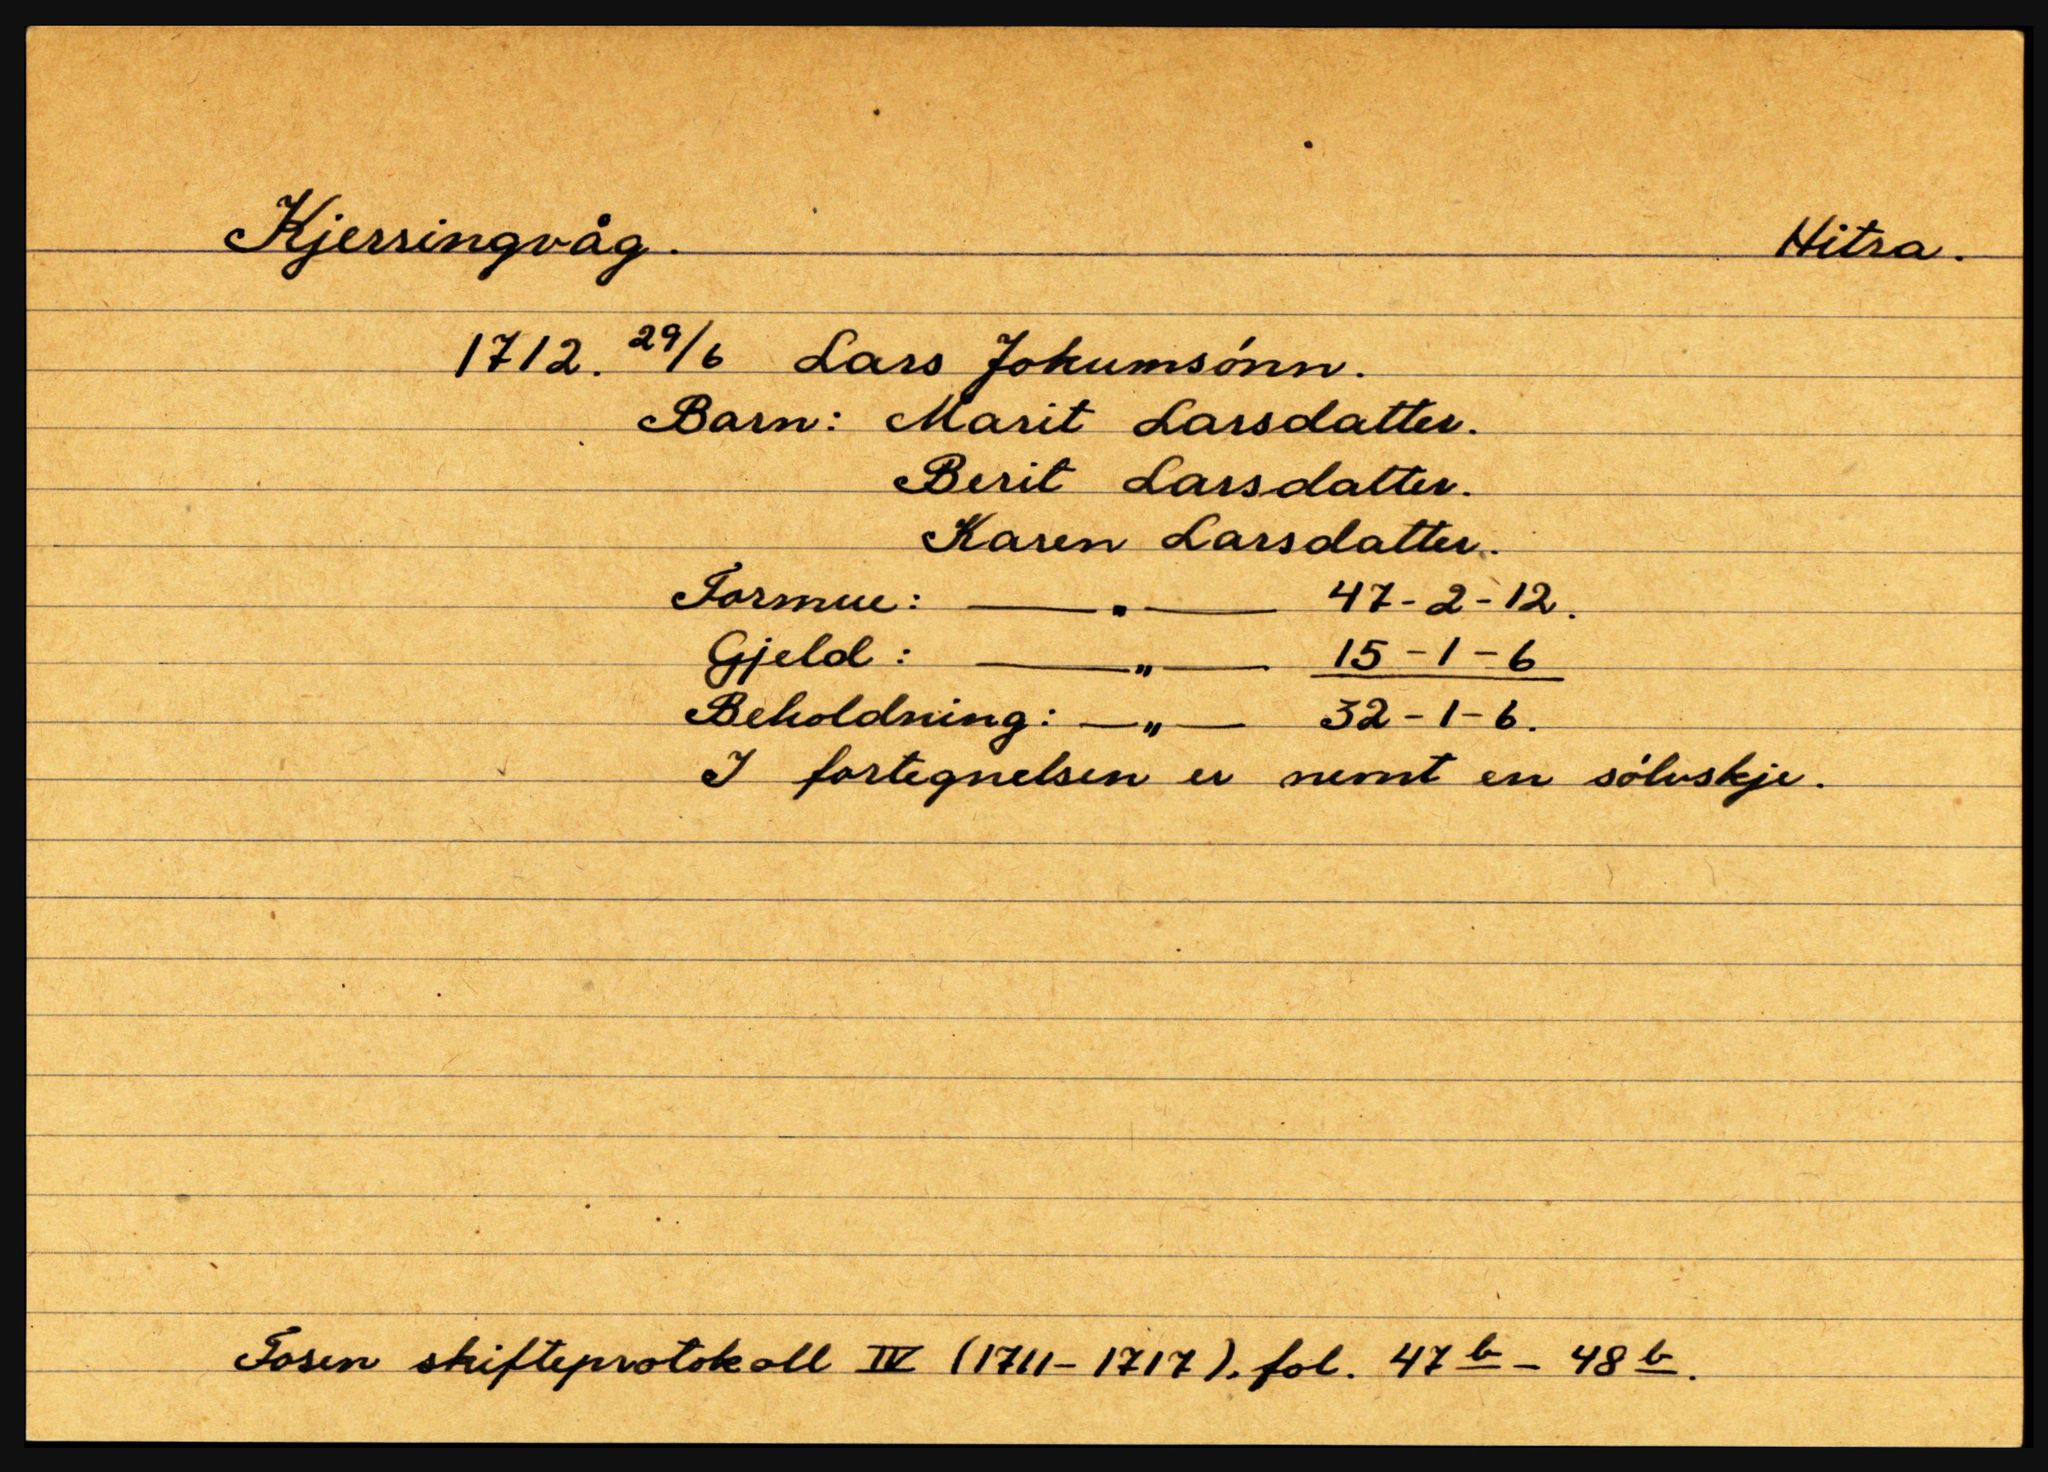 Kjerringvåg. Hitra.
1712. 29/6 Lars Jokumsónn.
Barn: Marit Larsdatter.
Berit Larsdatter.
Karen Larsdatter.
Formue: — " — 47-2-12.
Gjeld: — " — 15-1-6
Beholdning: — " — 32-1-6.
I fortegnelsen er nemt en sólvskje.
Fosen skifteprotokoll IV (1711-1717). fol. 47b - 48b.